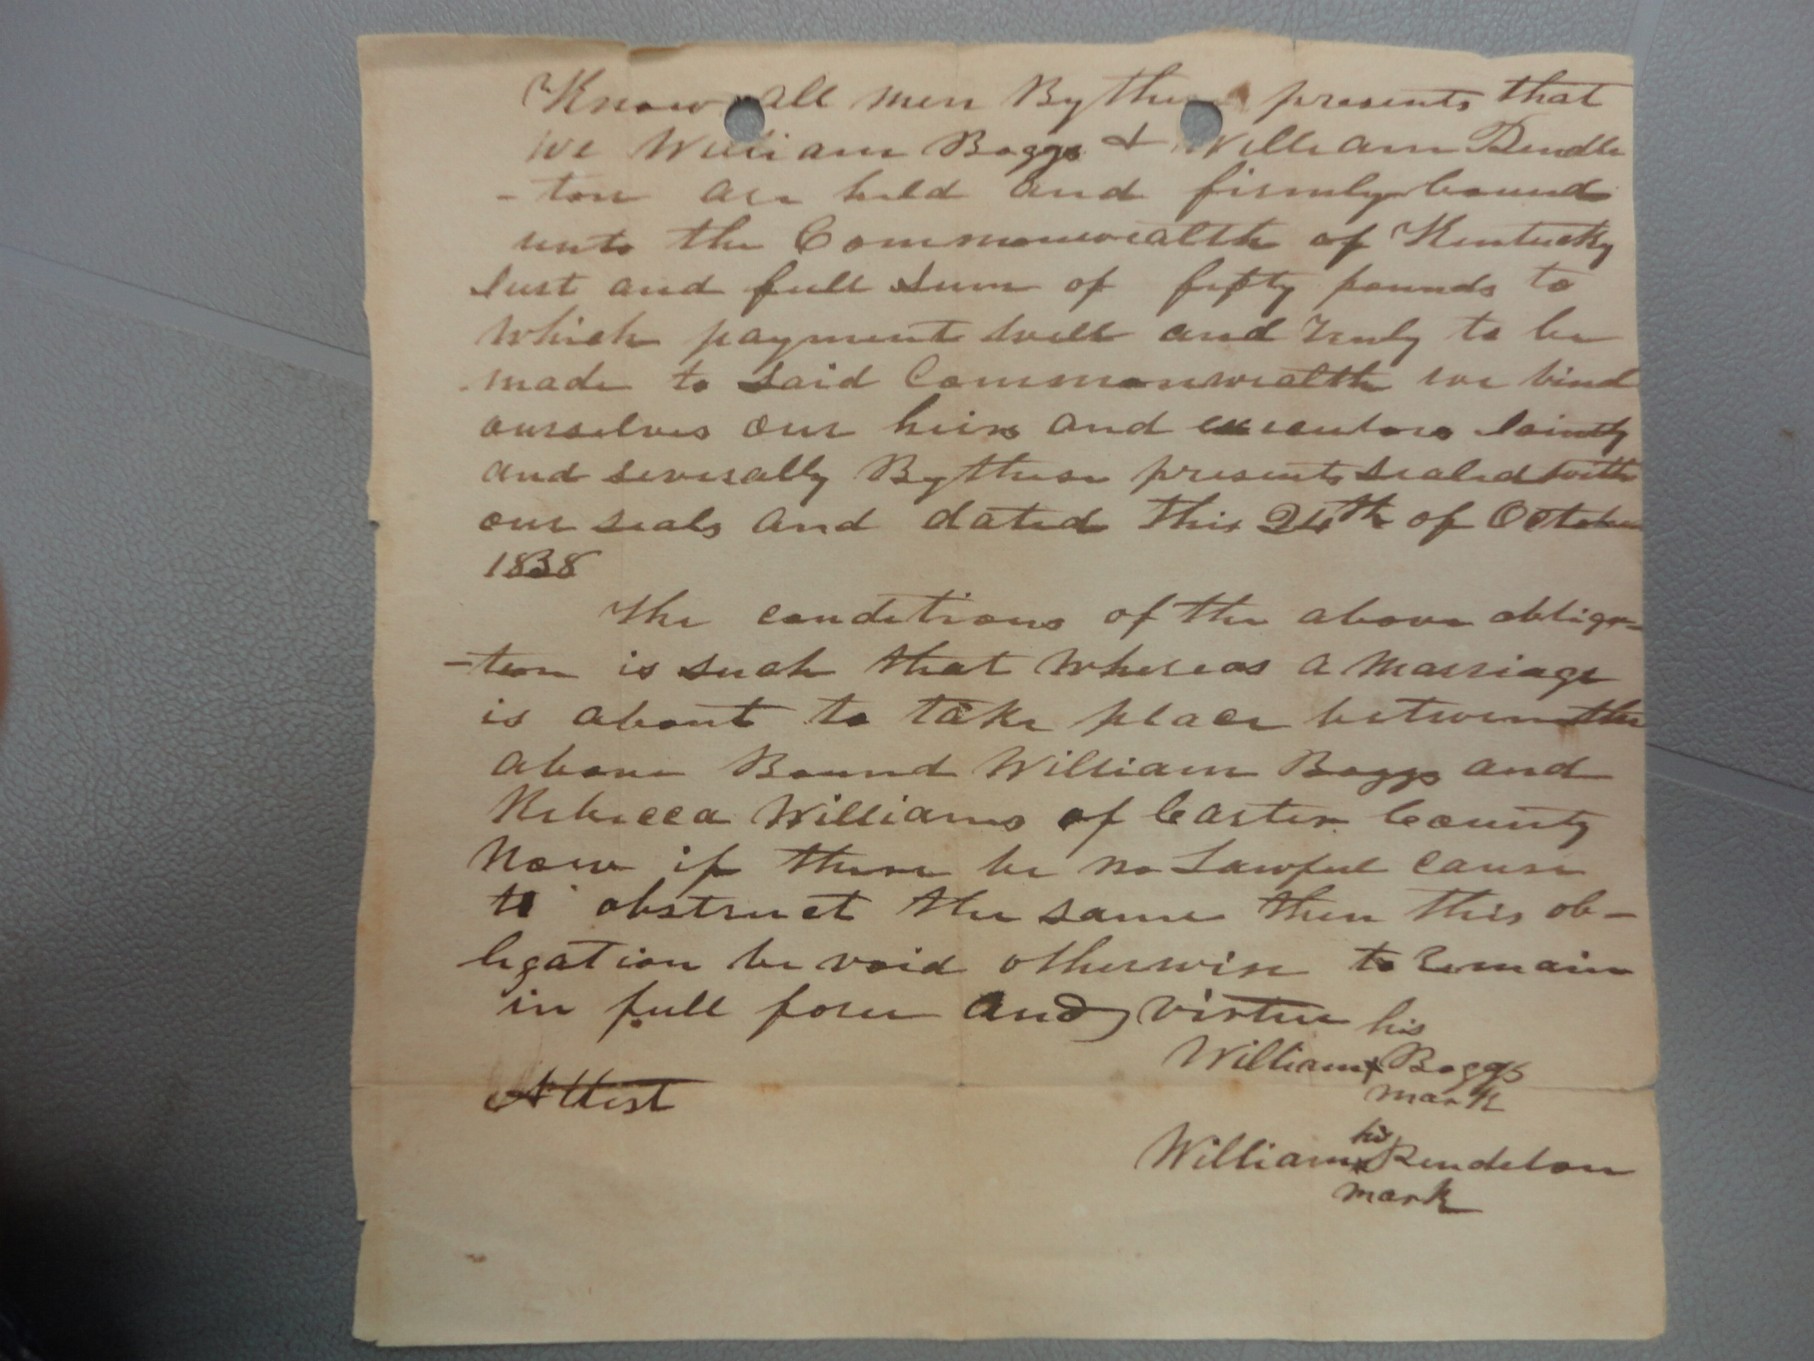 Know all men By these presents that
we William Boggs & William Pendle
-ton are held and firmly bound
unto the Commonwealth of Kentucky
Just and full Sum of fifty pounds to
which payment well and truly to be
made to said Commonwealth we bind
ourselves our heirs and executors Jointly
and severally By these presents sealed with
our seals and dated this 24th of October
1838
The conditions of the above obliga-
-tion is such that whereas a Marriage
is about to take place between the
above Bound William Boggs and
Rebecca Williams of Carter County
Now if there be no Lawful cause
to obstruct the same then this ob-
ligation be void otherwise to remain
in full force and virtue
his
William x Boggs
mark
Attest
his
William x Pendelton
mark